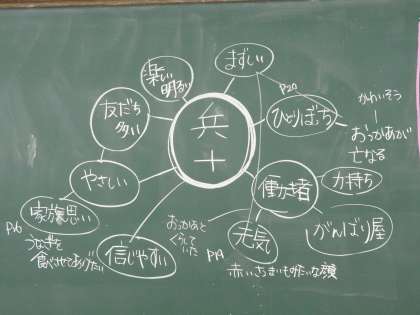 まずしい
楽しい
明るい
P20
かわいそう
友だち
多い
兵
十
ひとりぼっち
おっかあが
亡なる
やさしい
働き者
力持ち
家族思い
P16
うなぎを
食べさせてあげたい
信じやすい
おっかあと
くらして
いた
P19
元気
がんばり屋
赤いさつまいもみたいな顔